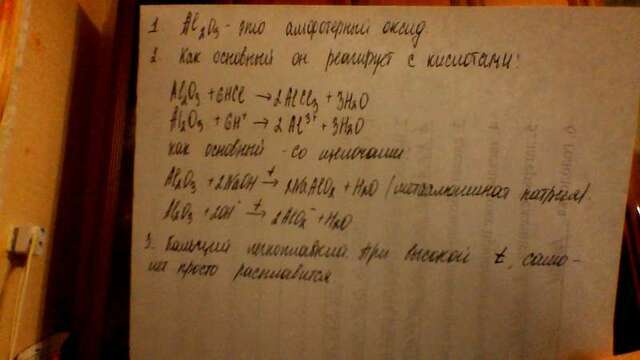 1. Al2O3 - это амфотерный оксид.
2. Как основный он реагирует с кислотами:
Al2O3 + 6HCl → 2AlCl3 + 3H2O
Al2O3 + 6H+ → 2Al3+ + 3H2O
как основный - со щелочами
Al2O3 + 2NaOH t→ 2NaAlO2 + H2O (метаалюминат натрия).
Al2O3 + 2OH- t→ 2AlO2- + H2O
3. Кальций легкоплавкий. При высокой t, само-
лёт просто расплавится